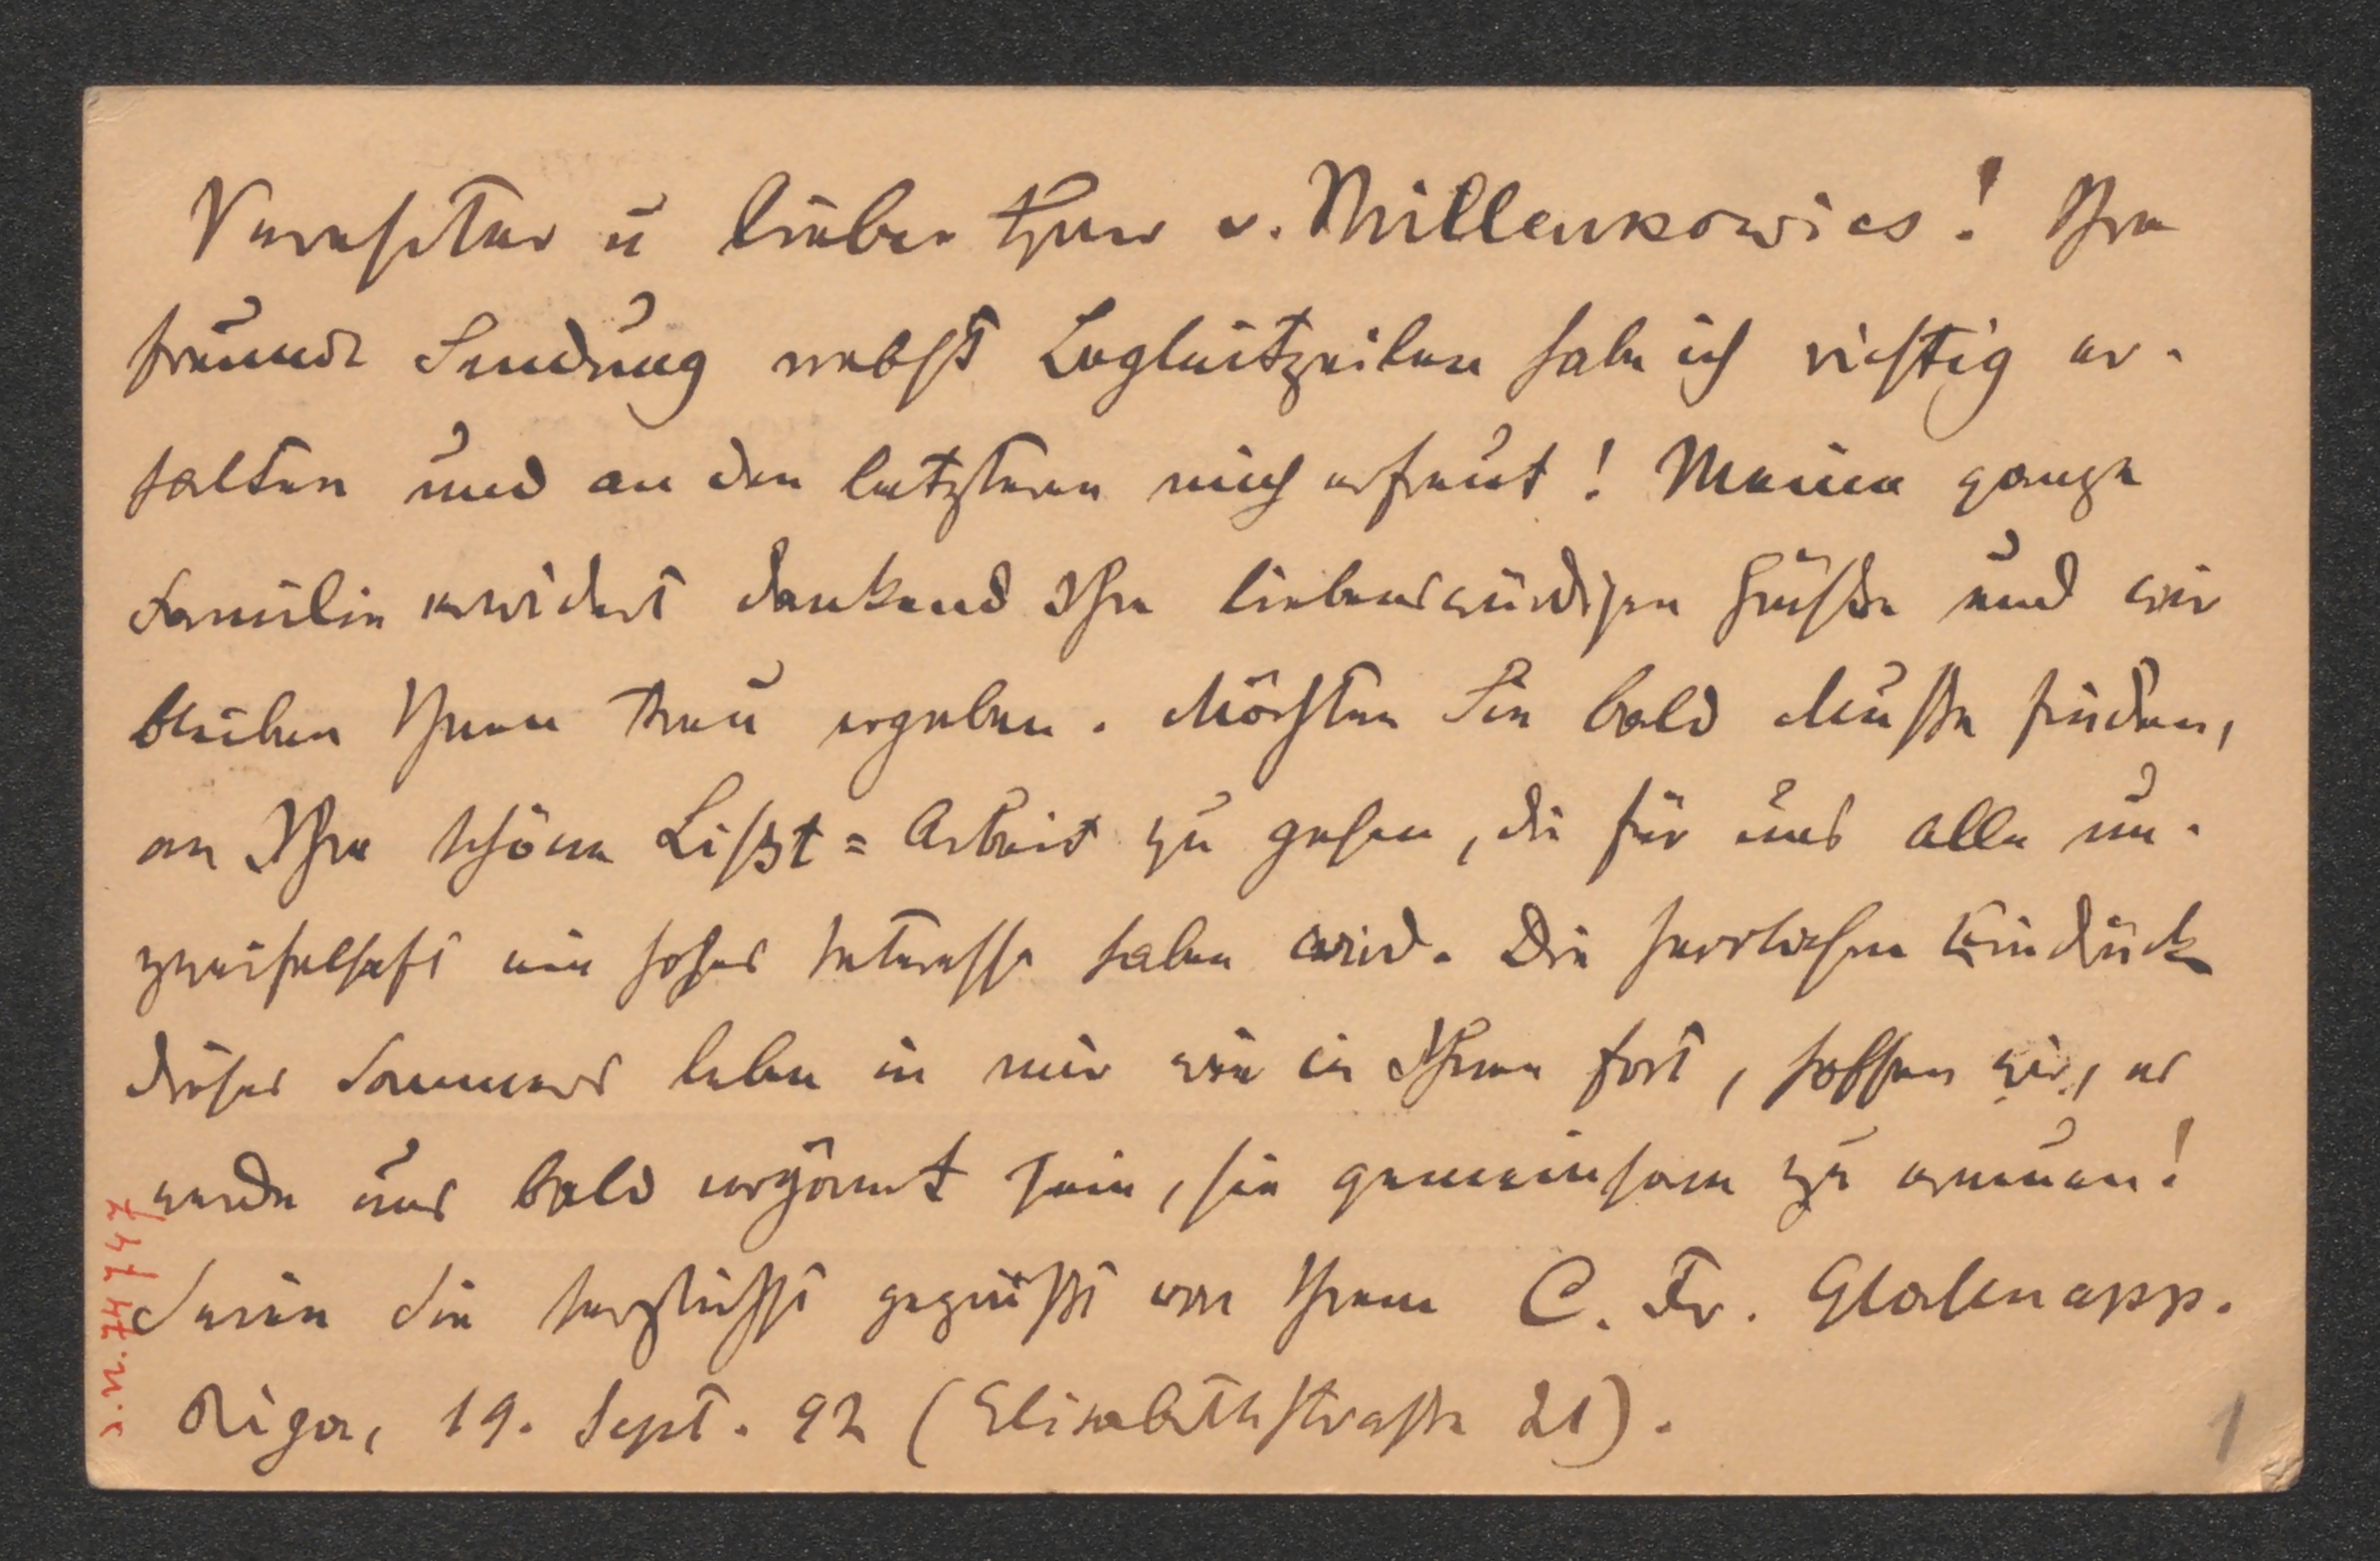 Verehrter u lieber Herr v. Millenkowics! Ihre
freundl Sendung nebst Begleitzeilen habe ich richtig er-
halten und an den letzteren mich erfreut! Meine ganze
Familie erwidert dankend Ihre liebenswürdigen Grüße und wir
bleiben Ihnen treu ergeben. Möchten Sie bald Muße finden,
an Ihre schöne Lißzt=Arbeit zu gehen, die für uns alle un-
zweifelhaft ein hohes Interesse haben wird. Die herrlichen Eindrücke
dieses Sommers leben in mir wie in Ihnen fort, hoffen wir, es
werde uns bald vergönnt sein, sie gemeinsam zu erneuen!
Seien Sie herzlichst gegrüßt von Ihrem C. Fr. Glasenapp.
Riga, 19. Sept. 92 (Elisabethstraße 21).
1